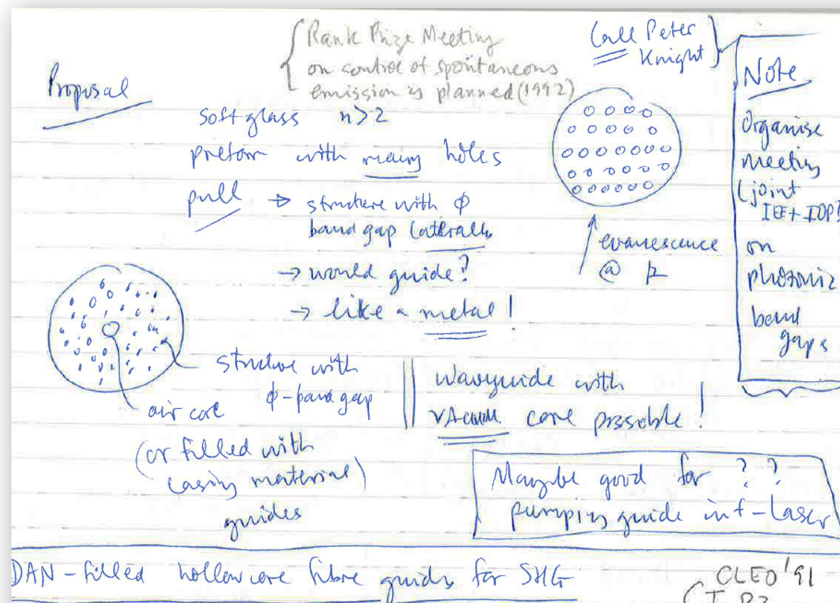 Rank Prize Meeting
on control of spontaneous
emission is planned (1992)
Call Peter
Knight
Note
Organise
meeting
(joint
IEE + IOP)
on
photonic
band
gaps
Proposal
soft glass n>2
preform with many holes
pull → structure with ϕ
band gap laterally
→ would guide?
→ like a metal!
evanescence
@
structure with
ϕ-band gap
air core
(or filled with
casing material)
guides
waveguide with
vacuum core possible!
Maybe good for ? ?
pumping guide in f-laser
DAN-filled hollow core fibre guides for SHG
CLEO '91